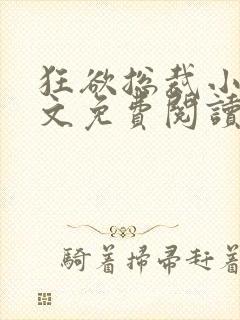 狂欲总裁小
文免費閱讀
騎着掃帚赶着